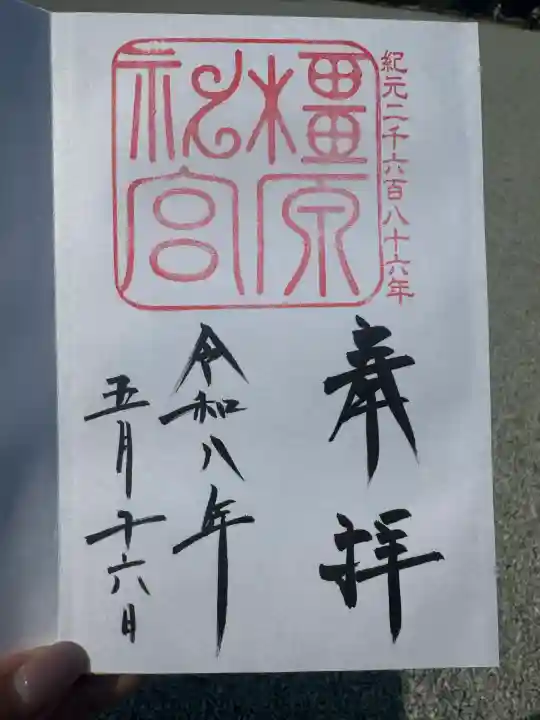 紀元二千六百八十六年
橿原
神宮
奉拝
令和八年
五月十六日